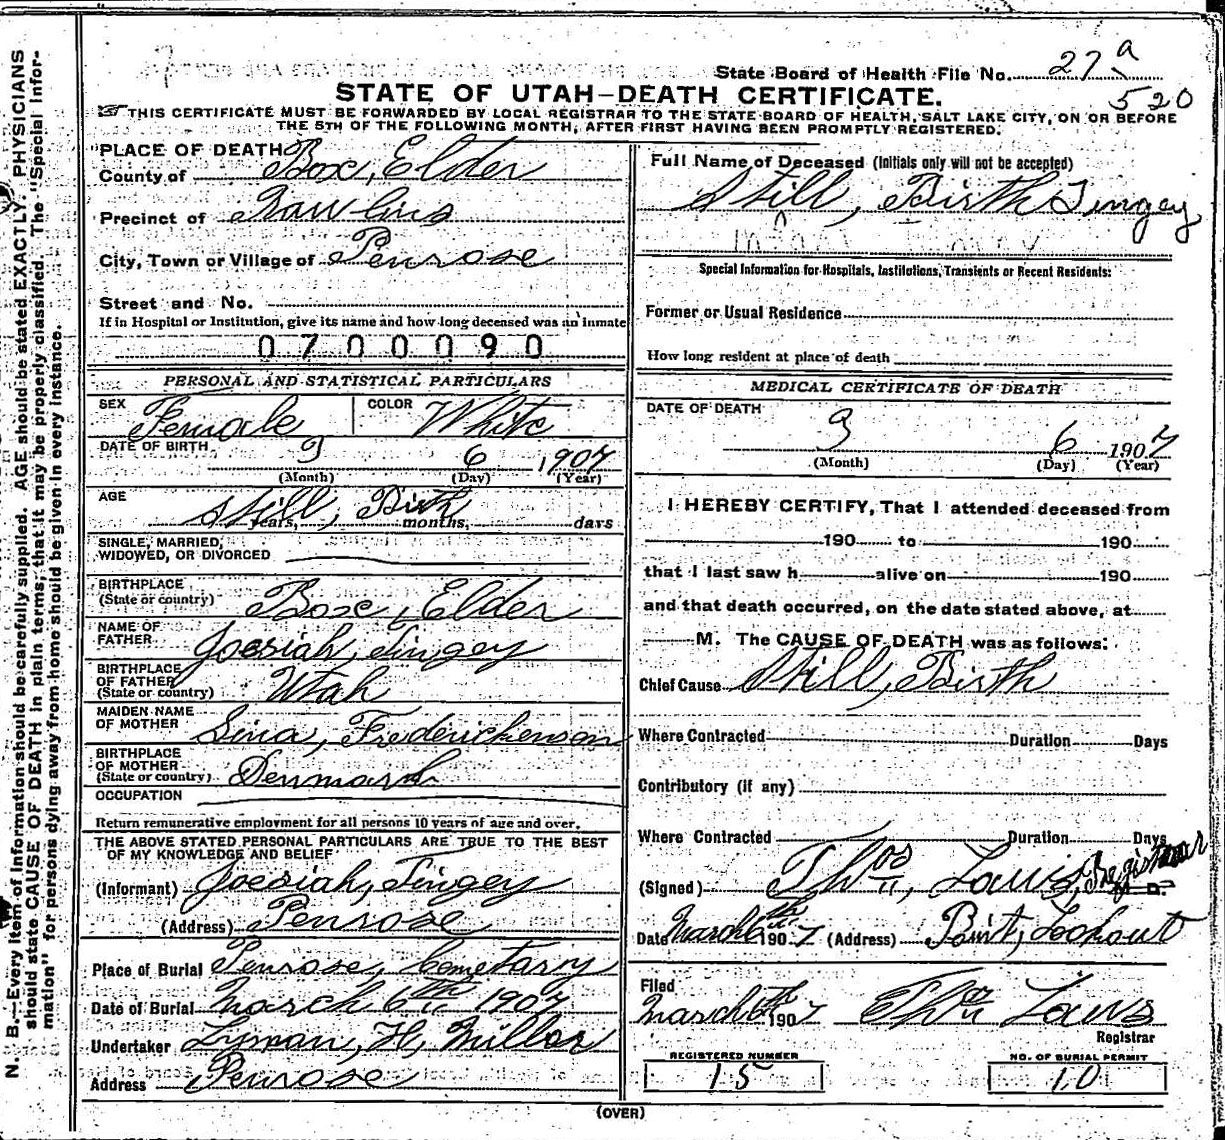 State Board of Health File No. 27 a
520
STATE OF UTAH—DEATH CERTIFICATE.
THIS CERTIFICATE MUST BE FORWARDED BY LOCAL REGISTRAR TO THE STATE BOARD OF HEALTH, SALT LAKE CITY, ON OR BEFORE
THE 5TH OF THE FOLLOWING MONTH, AFTER FIRST HAVING BEEN PROMPTLY REGISTERED.
PLACE OF DEATH
County of Box, Elder
Precinct of Rawlins
City, Town or Village of Penrose
Street and No.
If in Hospital or Institution, give its name and how long deceased was an inmate
0700090
PERSONAL AND STATISTICAL PARTICULARS
SEX Female COLOR White
DATE OF BIRTH 3 6 1907
(Month) (Day) (Year)
AGE
Still, Birth
years, months, days
SINGLE, MARRIED,
WIDOWED, OR DIVORCED
BIRTHPLACE
(State or country) Box, Elder
NAME OF
FATHER Joesiah, Tingey
BIRTHPLACE
OF FATHER
(State or country) Utah
MAIDEN NAME
OF MOTHER Sina, Frederickenson
BIRTHPLACE
OF MOTHER
(State or country) Denmark
OCCUPATION
Return remunerative employment for all persons 10 years of age and over.
THE ABOVE STATED PERSONAL PARTICULARS ARE TRUE TO THE BEST
OF MY KNOWLEDGE AND BELIEF
(Informant) Joesiah, Tingey
(Address) Penrose
Place of Burial Penrose, Cemetary
Date of Burial March 6th 1907
Undertaker Lyman, H, Miller
Address Penrose
Full Name of Deceased (Initials only will not be accepted)
Still, Birth Tingey
Special Information for Hospitals, Institutions, Transients or Recent Residents:
Former or Usual Residence
How long resident at place of death
MEDICAL CERTIFICATE OF DEATH
DATE OF DEATH
3 6 1907
(Month) (Day) (Year)
I HEREBY CERTIFY, That I attended deceased from
190 to 190
that I last saw h alive on 190
and that death occurred, on the date stated above, at
M. The CAUSE OF DEATH was as follows:
Chief Cause Still, Birth
Where Contracted Duration Days
Contributory (if any)
Where Contracted Duration Days
(Signed) Thos, Laws, Registrar
Date March 6th 1907 (Address) Point, Lookout
Filed
March 6th 1907 Thos Laws
Registrar
REGISTERED NUMBER
15
NO. OF BURIAL PERMIT
10
(OVER)
N. B.—Every item of information should be carefully supplied. AGE should be stated EXACTLY. PHYSICIANS
should state CAUSE OF DEATH in plain terms, that it may be properly classified. The "Special Infor-
mation" for persons dying away from home should be given in every instance.